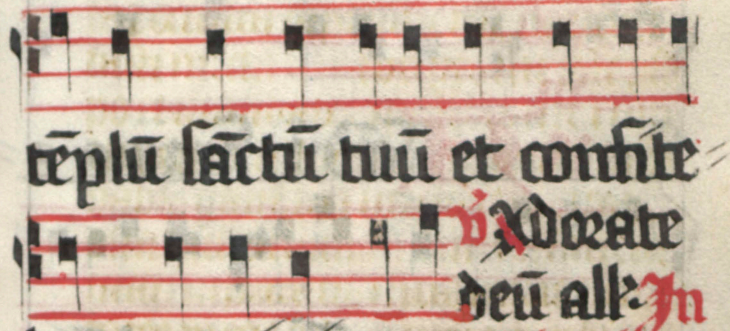 tēplū sāctū tuū et confite
℣ Adorate
deū all'. In